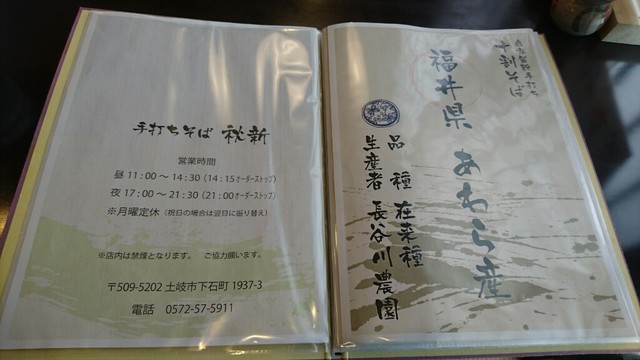 手打ちそば 秋新
営業時間
昼 11:00～14:30（14:15オーダーストップ）
夜 17:00～21:30（21:00オーダーストップ）
※月曜定休（祝日の場合は翌日に振り替え）
※店内は禁煙となります。 ご協力願います。
〒509-5202 土岐市下石町 1937-3
電話 0572-57-5911
十割そば
福井県 あわら産
品種 在来種
生産者 長谷川農園